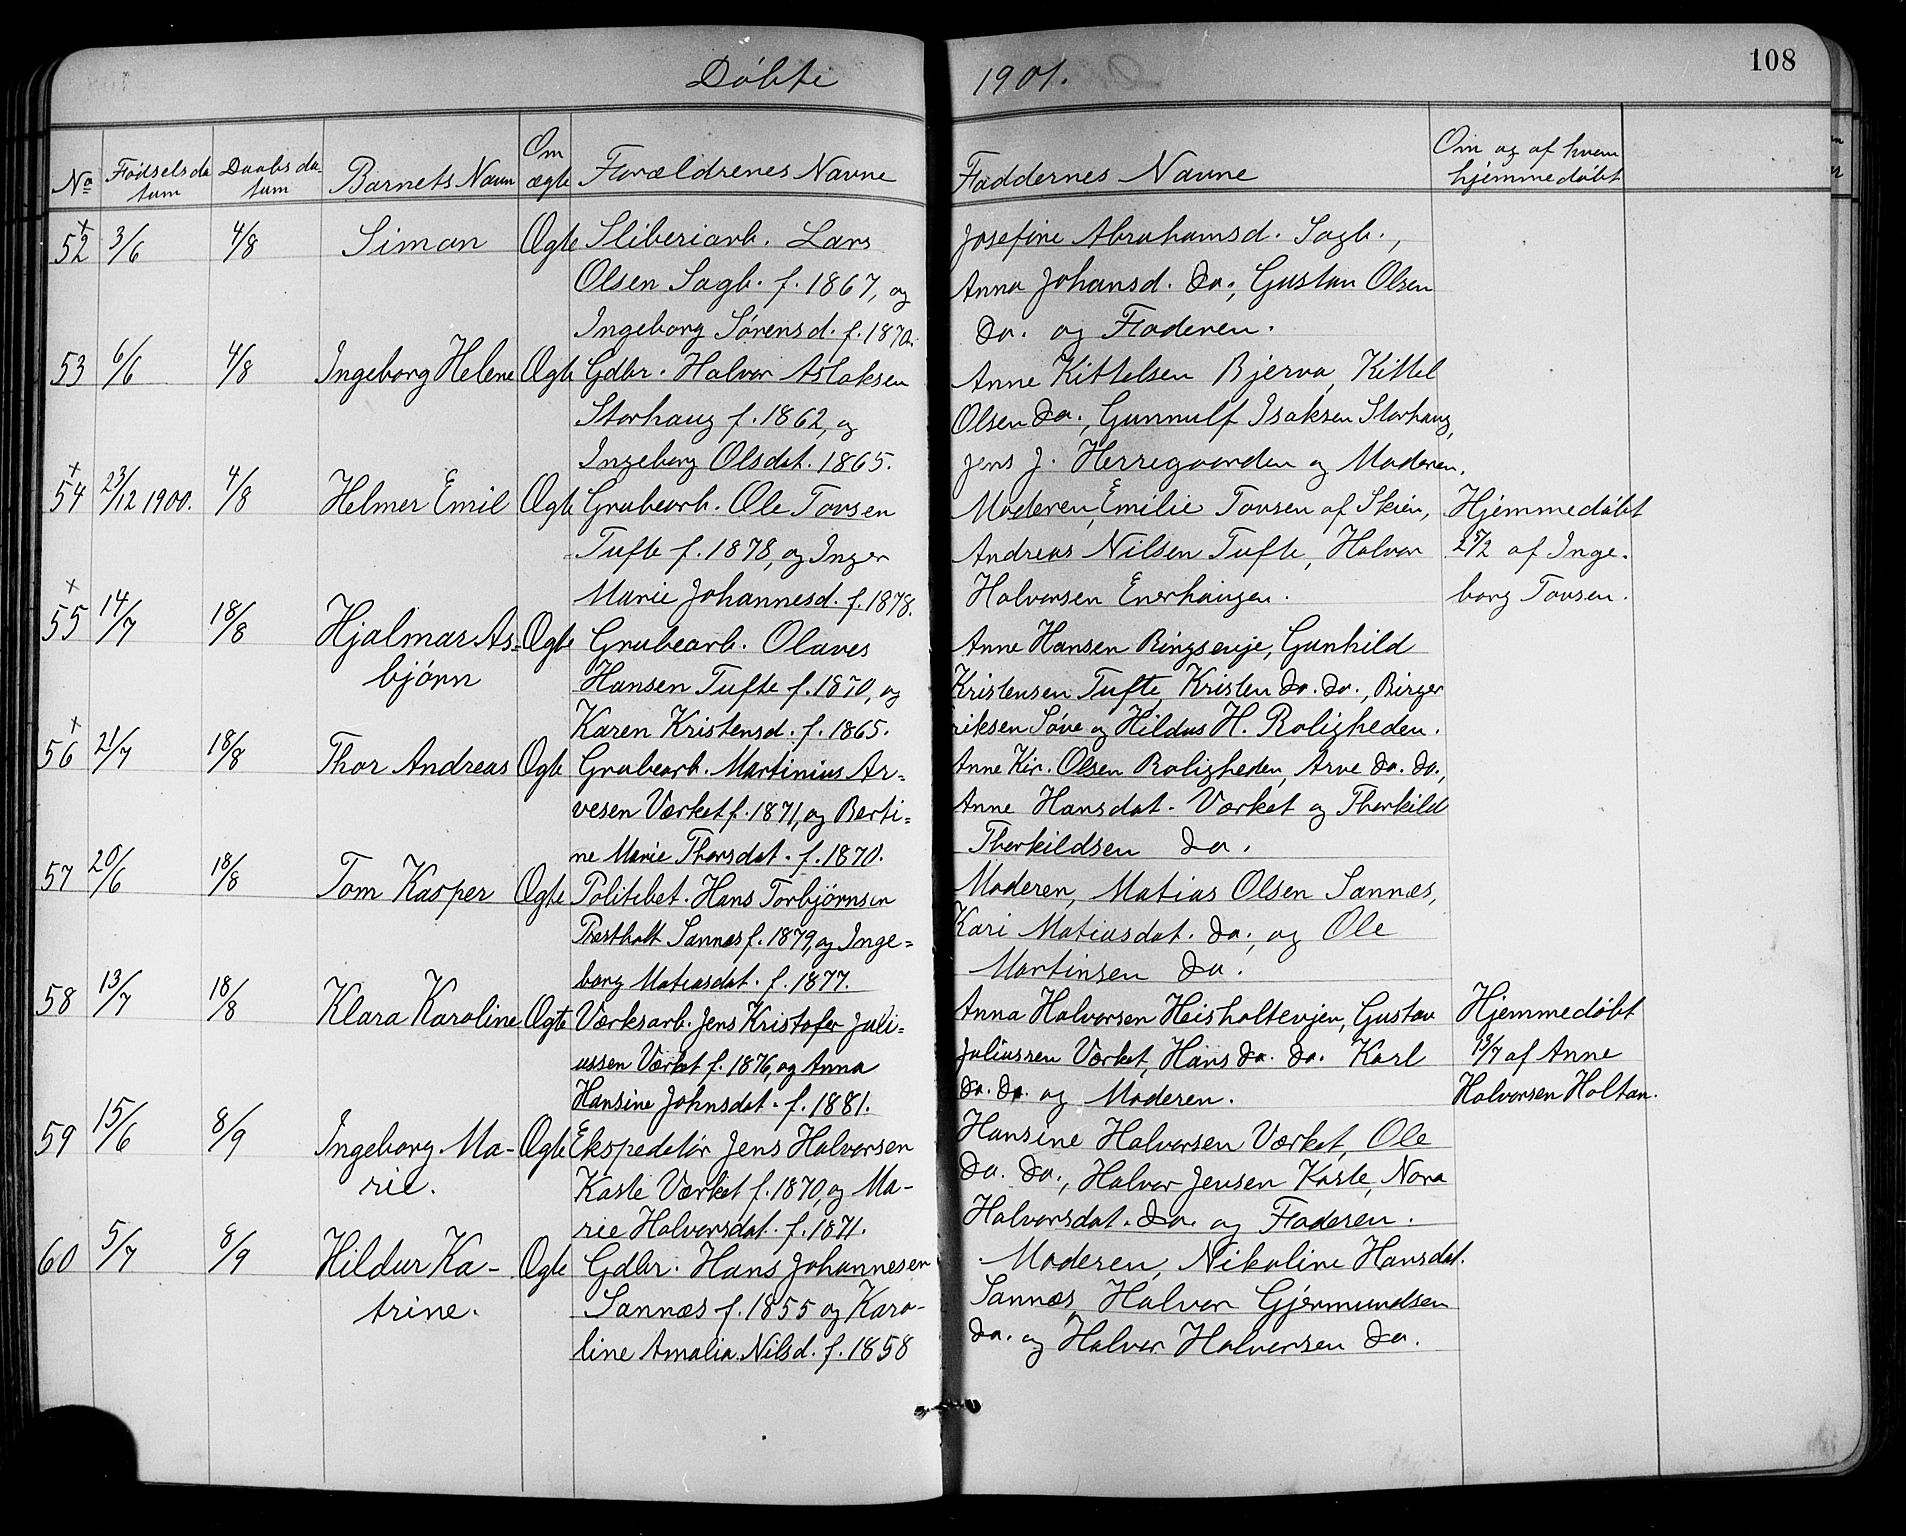 Døbte 1901. 108
No Fødselsda- tum Daabs da- tum Barnets Navn Om ægte Forældrenes Navne Faddernes Navne Om og af hvem hjemmedøbt
52 3/6 4/8 Simon Ægte Sliberiarb. Lars Josefine Abrahamsd. Sagb.,
Olsen Sagb. f. 1867, og Anna Johansd. do., Gustav Olsen
Ingeborg Sørensd. f. 1870. do. og Faderen.
53 6/6 4/8 Ingeborg Helene Ægte Gdbr. Halvor Aslaksen Anne Kittelsen Bjerva, Kittel
Storhaug f. 1862, og Olsen do., Gunnulf Isaksen Storhaug,
Ingeborg Olsdat. 1865. Jens J. Herregaarden og Moderen.
54 23/12 1900. 4/8 Helmer Emil Ægte Grubearb. Ole Tovsen Moderen, Emilie Tovsen af Skien, Hjemmedøbt
Tufte f. 1878, og Inger Andreas Nilsen Tufte, Halvor 25/2 af Inge-
Marie Johannesd. f. 1878. Halvorsen Enerhaugen. borg Tovsen.
55 14/7 18/8 Hjalmar As- Ægte Grubearb. Olaves Anne Hansen Ringsevje, Gunhild
bjørn Hansen Tufte f. 1870, og Kristensen Tufte, Kristen do. do., Birger
Karen Kristensd. f. 1865. riksen Søve og Hildus H. Roligheden.
56 21/7 18/8 Thor Andreas Ægte Grubearb. Martinius Ar- Anne Kir. Olsen Roligheden, Arve do. do.,
vesen Værket f. 1871, og Berti- Anne Hansdat. Værket og Thorkild
ne Marie Thorsdat. f. 1870. Thorkildsen do.
57 20/6 18/8 Tom Kasper Ægte Politibet. Hans Torbjørnsen Moderen, Matias Olsen Sannæs,
Prestholt Sannæs f. 1879, og Inge- Kari Matiasdat. do., og Ole
borg Matiasdat. f. 1877. Martinsen do.
58 13/7 18/8 Klara Karoline Ægte Værksarb. Jens Kristofer Juli- Anna Halvorsen Heisholtevjen, Gustav Hjemmedøbt
ussen Værket f. 1876, og Anna Juliussen Værket, Hans do. do. Karl 13/7 af Anne
Hansine Johnsdat. f. 1881. do. do. og Moderen. Halvorsen Holtan.
59 15/6 8/9 Ingeborg Ma- Ægte Ekspeditør Jens Halvorsen Hansine Halvorsen Værket, Ole
rie. Kaste Værket f. 1870, og Ma- do. do., Halvor Jensen Kaste, Nora
rie Halvorsdat. f. 1871. Halvorsdat. do. og Faderen.
60 5/7 8/9 Hildur Ka- Ægte Gdbr. Hans Johannesen Moderen, Nikoline Hansdat.
trine. Sannæs f. 1855 og Karo- Sannæs, Halvor Gjermundsen
line Amalia Nilsd. f. 1858 do. og Halvor Halvorsen do.